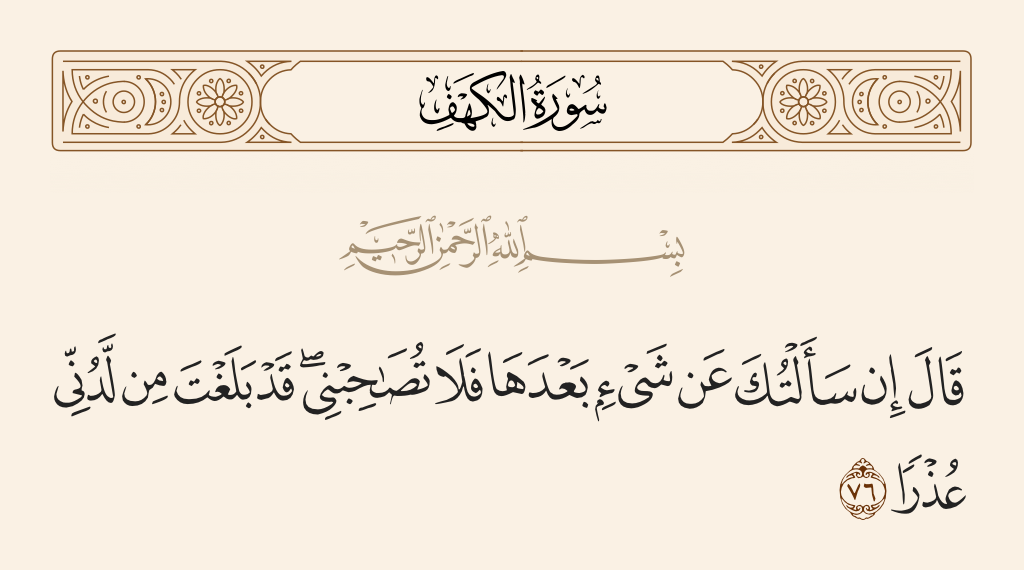 سُورَةُ الكَهْفِ
بِسْمِ ٱللَّهِ ٱلرَّحْمَٰنِ ٱلرَّحِيمِ
قَالَ إِن سَأَلْتُكَ عَن شَىْءٍۭ بَعْدَهَا فَلَا تُصَـٰحِبْنِى ۖ قَدْ بَلَغْتَ مِن لَّدُنِّى
عُذْرًا ٧٦